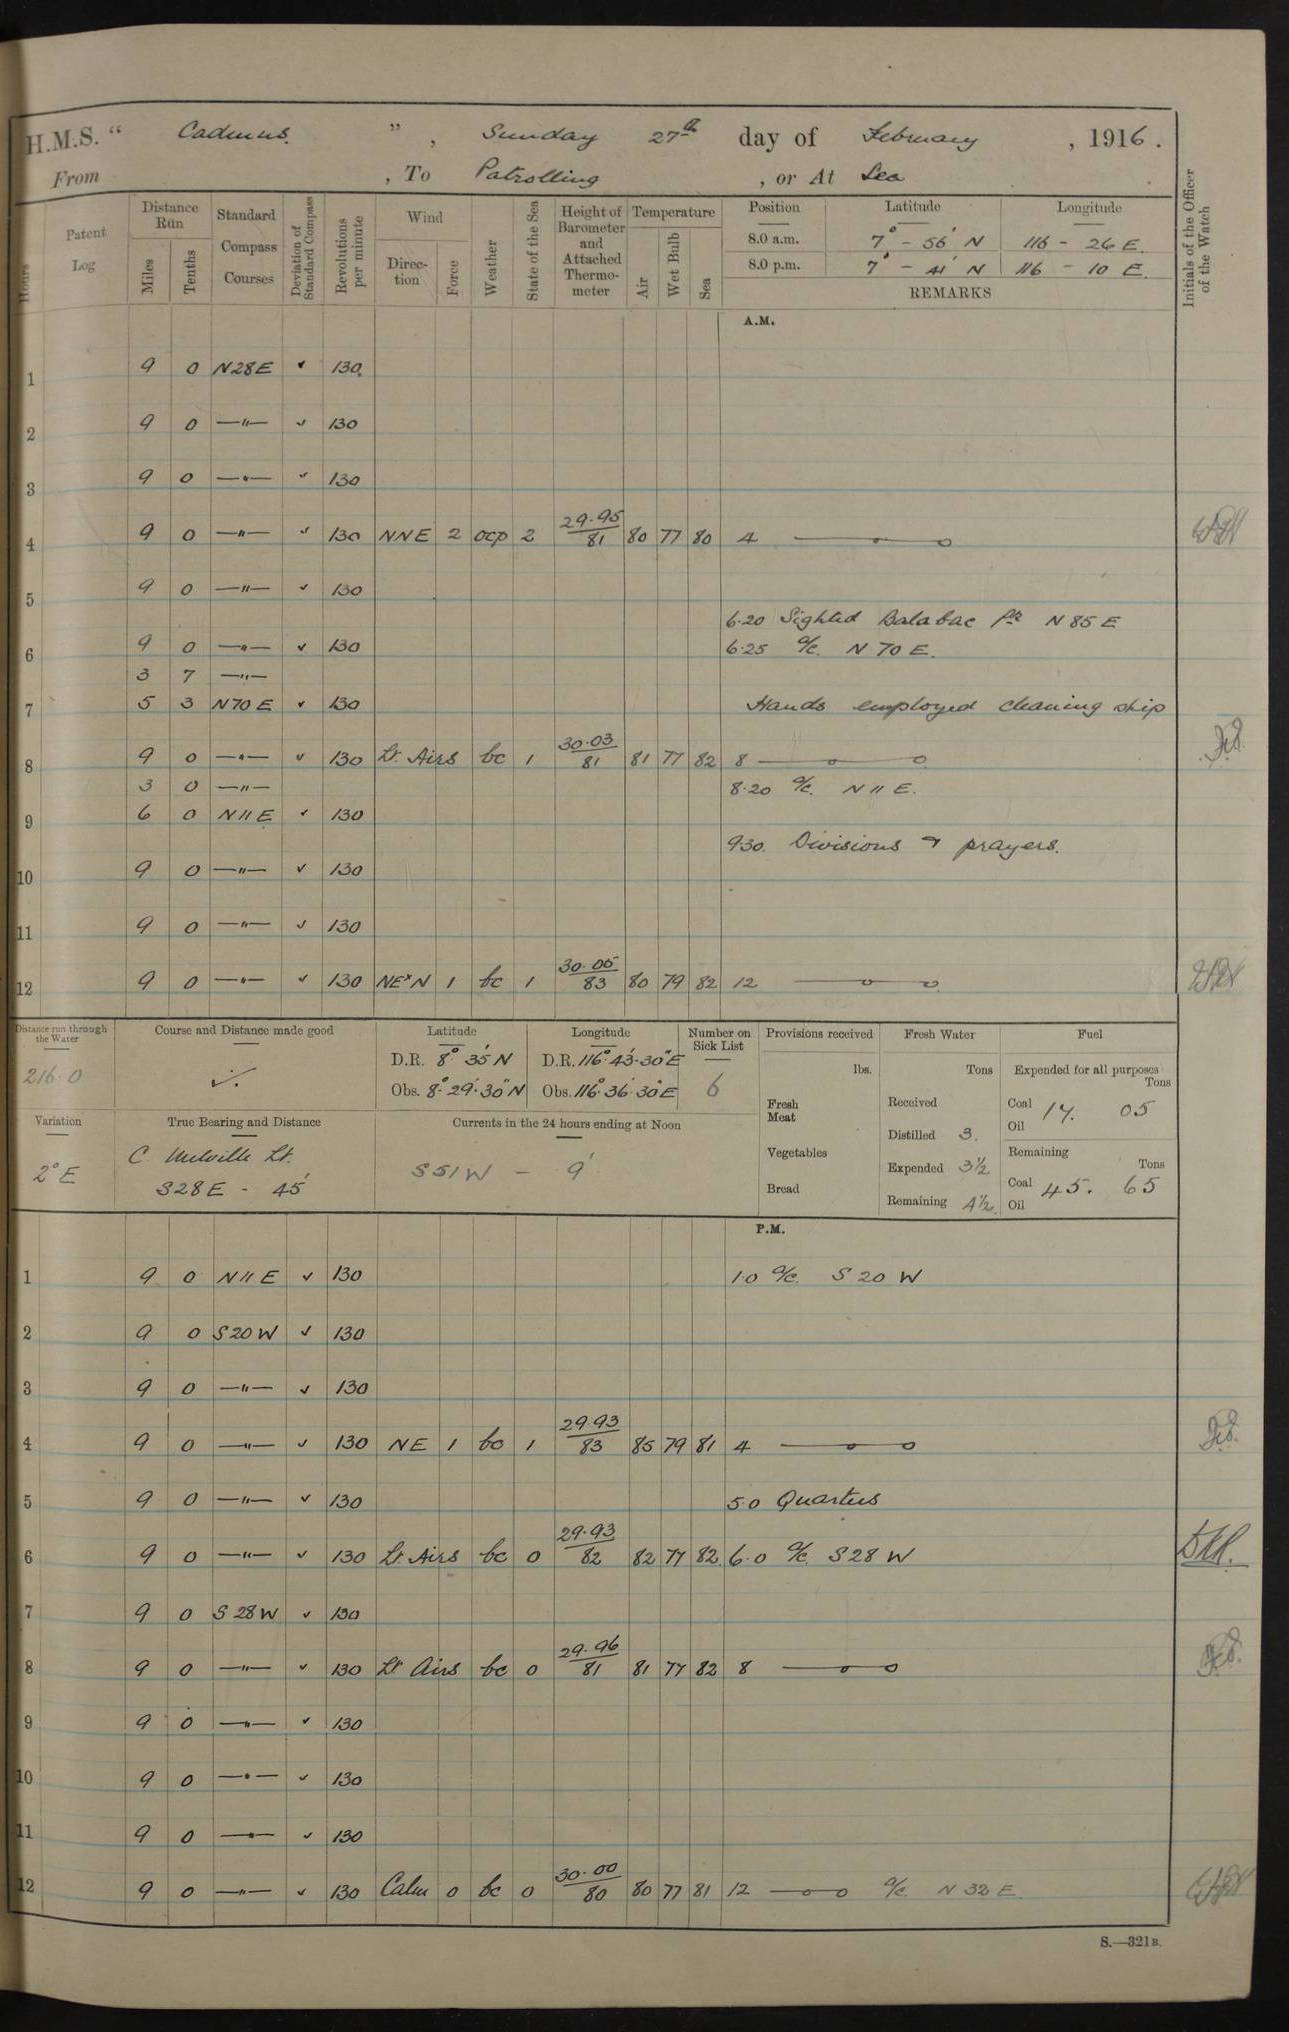 H.M.S. " Cadmus. ", Sunday 27th day of February, 1916.
From , To Patrolling , or At Sea
Hours
Patent Log
Distance Run
Miles
Tenths
Standard Compass Courses
Deviation of Standard Compass
Revolutions per minute
Wind
Direction
Force
Weather
State of the Sea
Height of Barometer and Attached Thermometer
Temperature
Air
Wet Bulb
Sea
Position Latitude Longitude
8.0 a.m. 7° - 56' N 116 - 26 E.
8.0 p.m. 7° - 41' N 116 - 10 E
REMARKS
Initials of the Officer of the Watch
A.M.
1 9 0 N28E ✓ 130
2 9 0 —"— ✓ 130
3 9 0 —"— ✓ 130
4 9 0 —"— ✓ 130 NNE 2 ocp 2 29.95/81 80 77 80 4
5 9 0 —"— ✓ 130
6.20 Sighted Balabac Pk N85E
6 9 0 —"— ✓ 130 6.25 a/c. N70E.
3 7 —"—
7 5 3 N70E ✓ 130 Hands employed cleaning ship
8 9 0 —"— ✓ 130 Lt. Airs bc 1 30.03/81 81 77 82 8
3 0 —"— 8.20 a/c. N11E.
9 6 0 N11E ✓ 130
9.30. Divisions & prayers.
10 9 0 —"— ✓ 130
11 9 0 —"— ✓ 130
12 9 0 —"— ✓ 130 NExN 1 bc 1 30.05/83 80 79 82 12
Distance run through the Water
216.0
Course and Distance made good
Latitude
D.R. 8° 35' N
Obs. 8° 29' 30" N
Longitude
D.R. 116° 43' 30" E
Obs. 116° 36' 30" E
Number on Sick List
6
Provisions received
lbs.
Fresh Meat
Vegetables
Bread
Fresh Water
Tons
Received
Distilled 3.
Expended 3½
Remaining 4½
Fuel
Expended for all purposes
Tons
Coal 14. 05
Oil
Remaining
Tons
Coal 45. 65
Oil
Variation
2° E
True Bearing and Distance
C. Melville Lt.
S28E - 45'
Currents in the 24 hours ending at Noon
S51W - 9'
P.M.
1 9 0 N11E ✓ 130 1.0 a/c. S20W
2 9 0 S20W ✓ 130
3 9 0 —"— ✓ 130
4 9 0 —"— ✓ 130 NE 1 bc 1 29.93/83 85 79 81 4
5 9 0 —"— ✓ 130 5.0 Quarters
6 9 0 —"— ✓ 130 Lt. Airs bc 0 29.93/82 82 77 82 6.0 a/c. S28W
7 9 0 S28W ✓ 130
8 9 0 —"— ✓ 130 Lt Airs bc 0 29.96/81 81 77 82 8
9 9 0 —"— ✓ 130
10 9 0 —"— ✓ 130
11 9 0 —"— ✓ 130
12 9 0 —"— ✓ 130 Calm 0 bc 0 30.00/80 80 77 81 12 a/c. N32E
S.—321B.